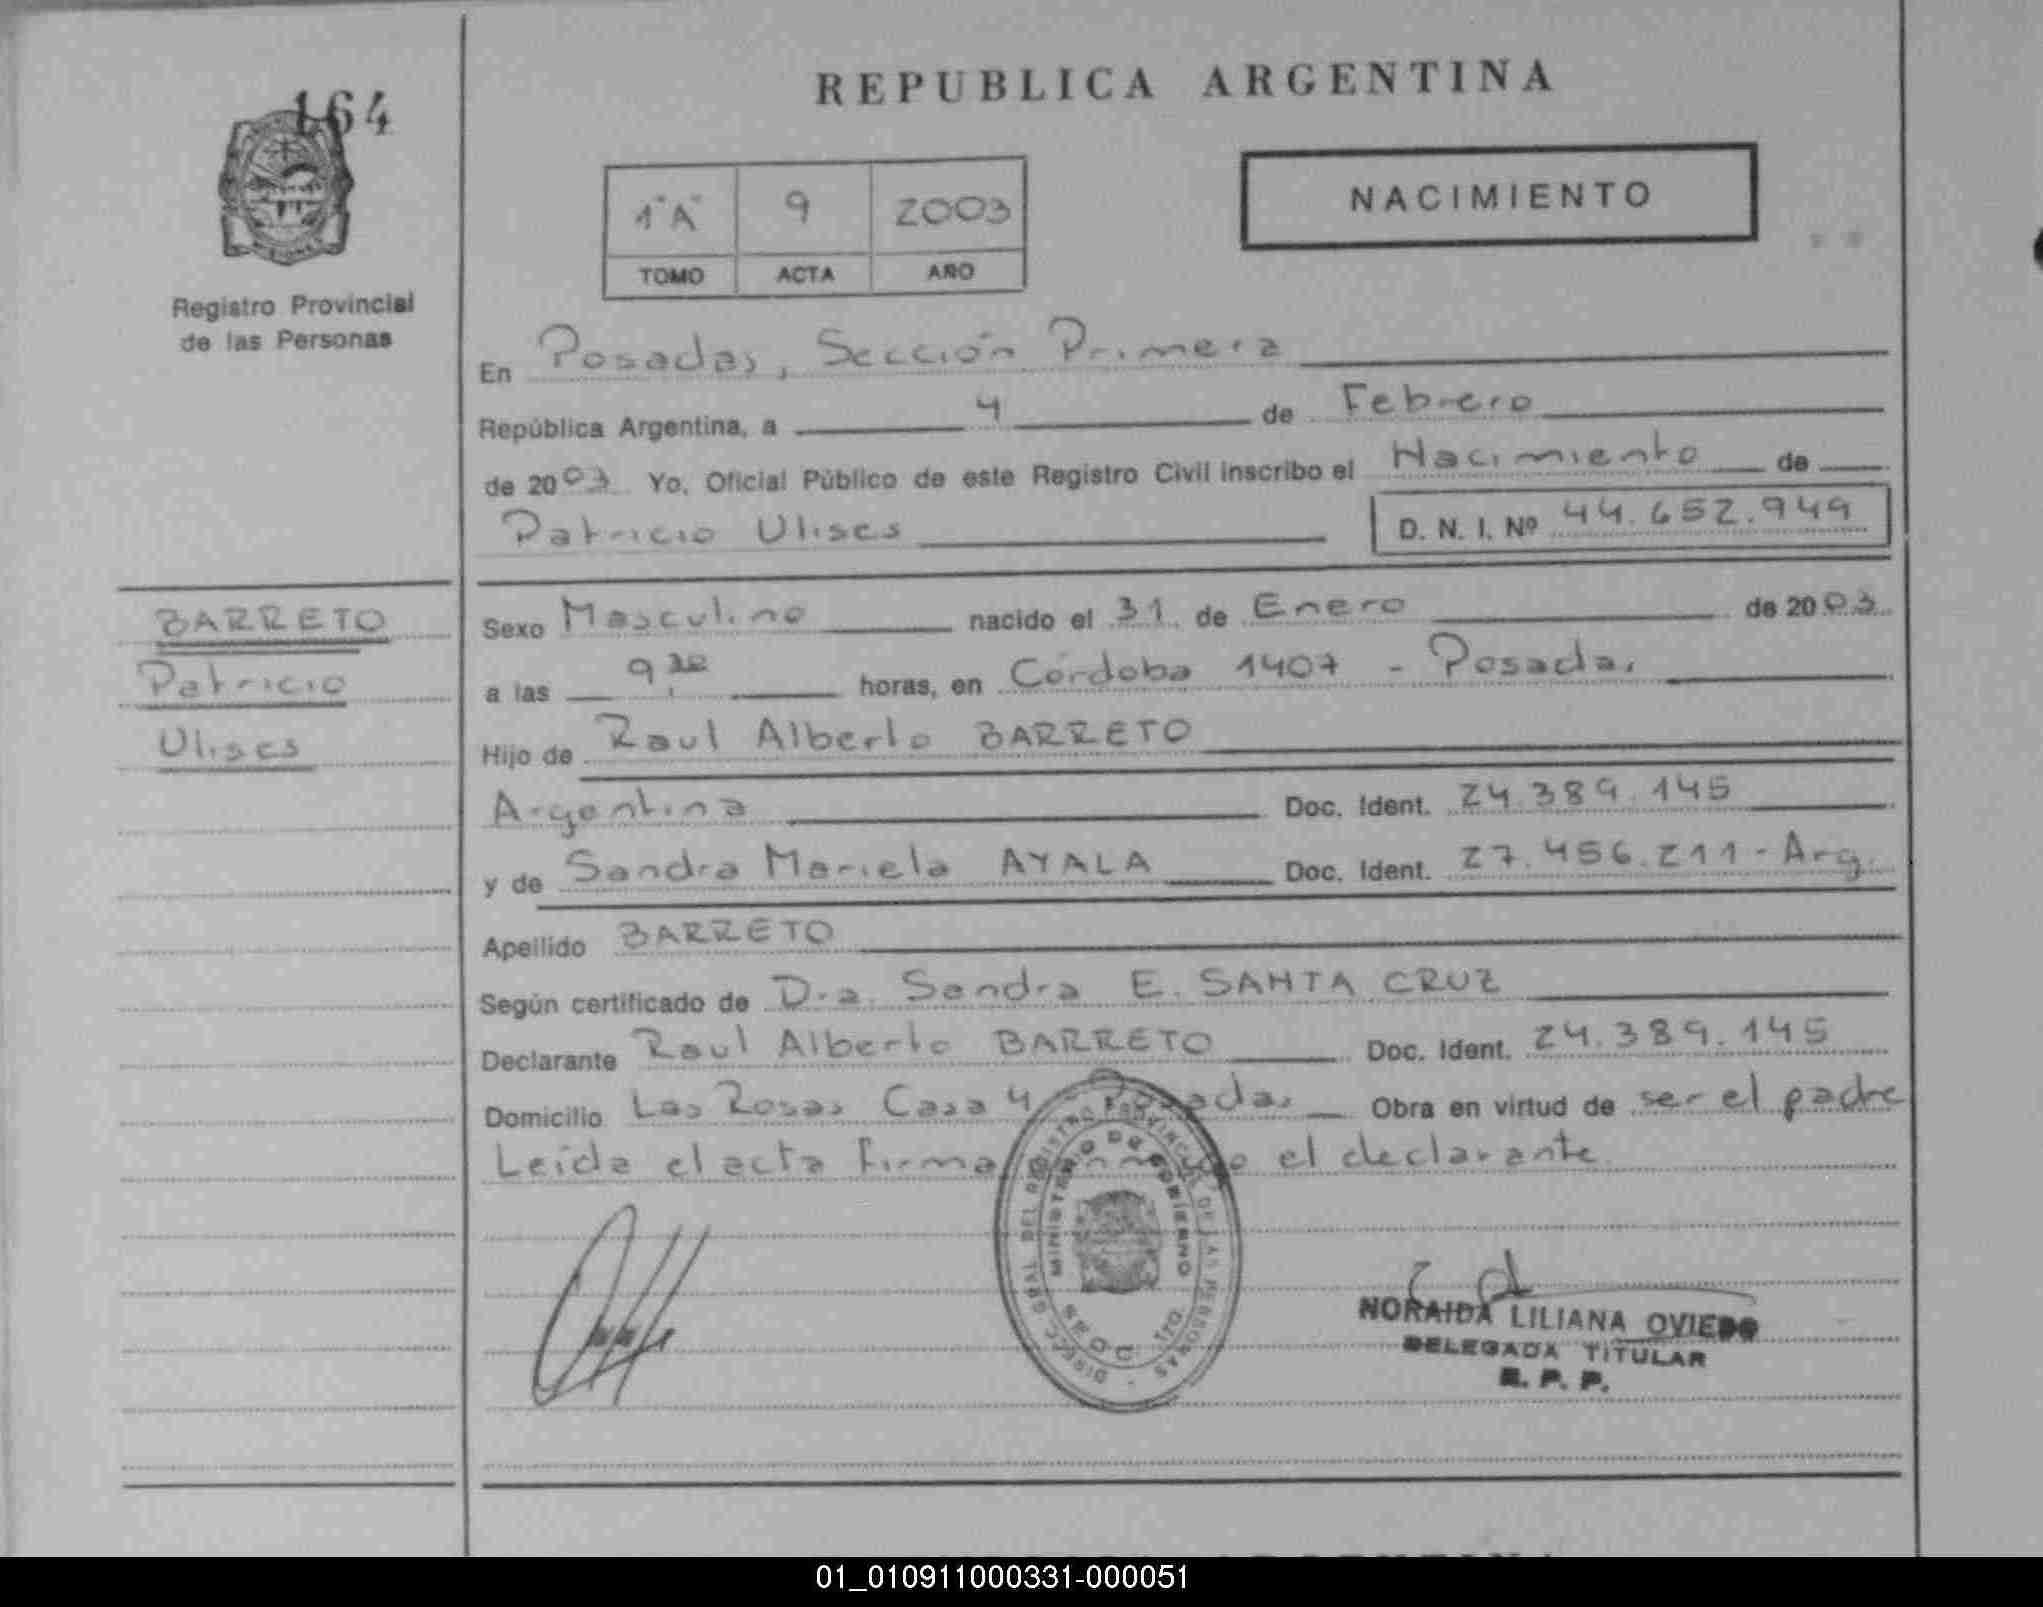 164
Registro Provincial
de las Personas
REPUBLICA ARGENTINA
1"A" 9 2003
TOMO ACTA AÑO
NACIMIENTO
En Posadas, Sección Primera
República Argentina, a 4 de Febrero
de 2003 Yo, Oficial Público de este Registro Civil inscribo el Nacimiento de
Patricio Ulises D. N. I. Nº 44.652.949
BARRETO
Patricio
Ulises
Sexo Masculino nacido el 31 de Enero de 2003
a las 9 30 horas, en Córdoba 1407 - Posadas
Hijo de Raul Alberto BARRETO
Argentina Doc. Ident. 24.389.145
y de Sandra Mariela AYALA Doc. Ident. 27.456.211 - Arg.
Apellido BARRETO
Según certificado de Dra. Sandra E. SANTA CRUZ
Declarante Raul Alberto BARRETO Doc. Ident. 24.389.145
Domicilio Las Rosas Casa 4 Posadas Obra en virtud de ser el padre
Leída el acta firma el declarante
DIRECC. GRAL DEL REGISTRO PROVINCIAL DE LAS PERSONAS
MINISTERIO DE GOBIERNO
NORAIDA LILIANA OVIEDO
DELEGADA TITULAR
R. P. P.
01_010911000331-000051